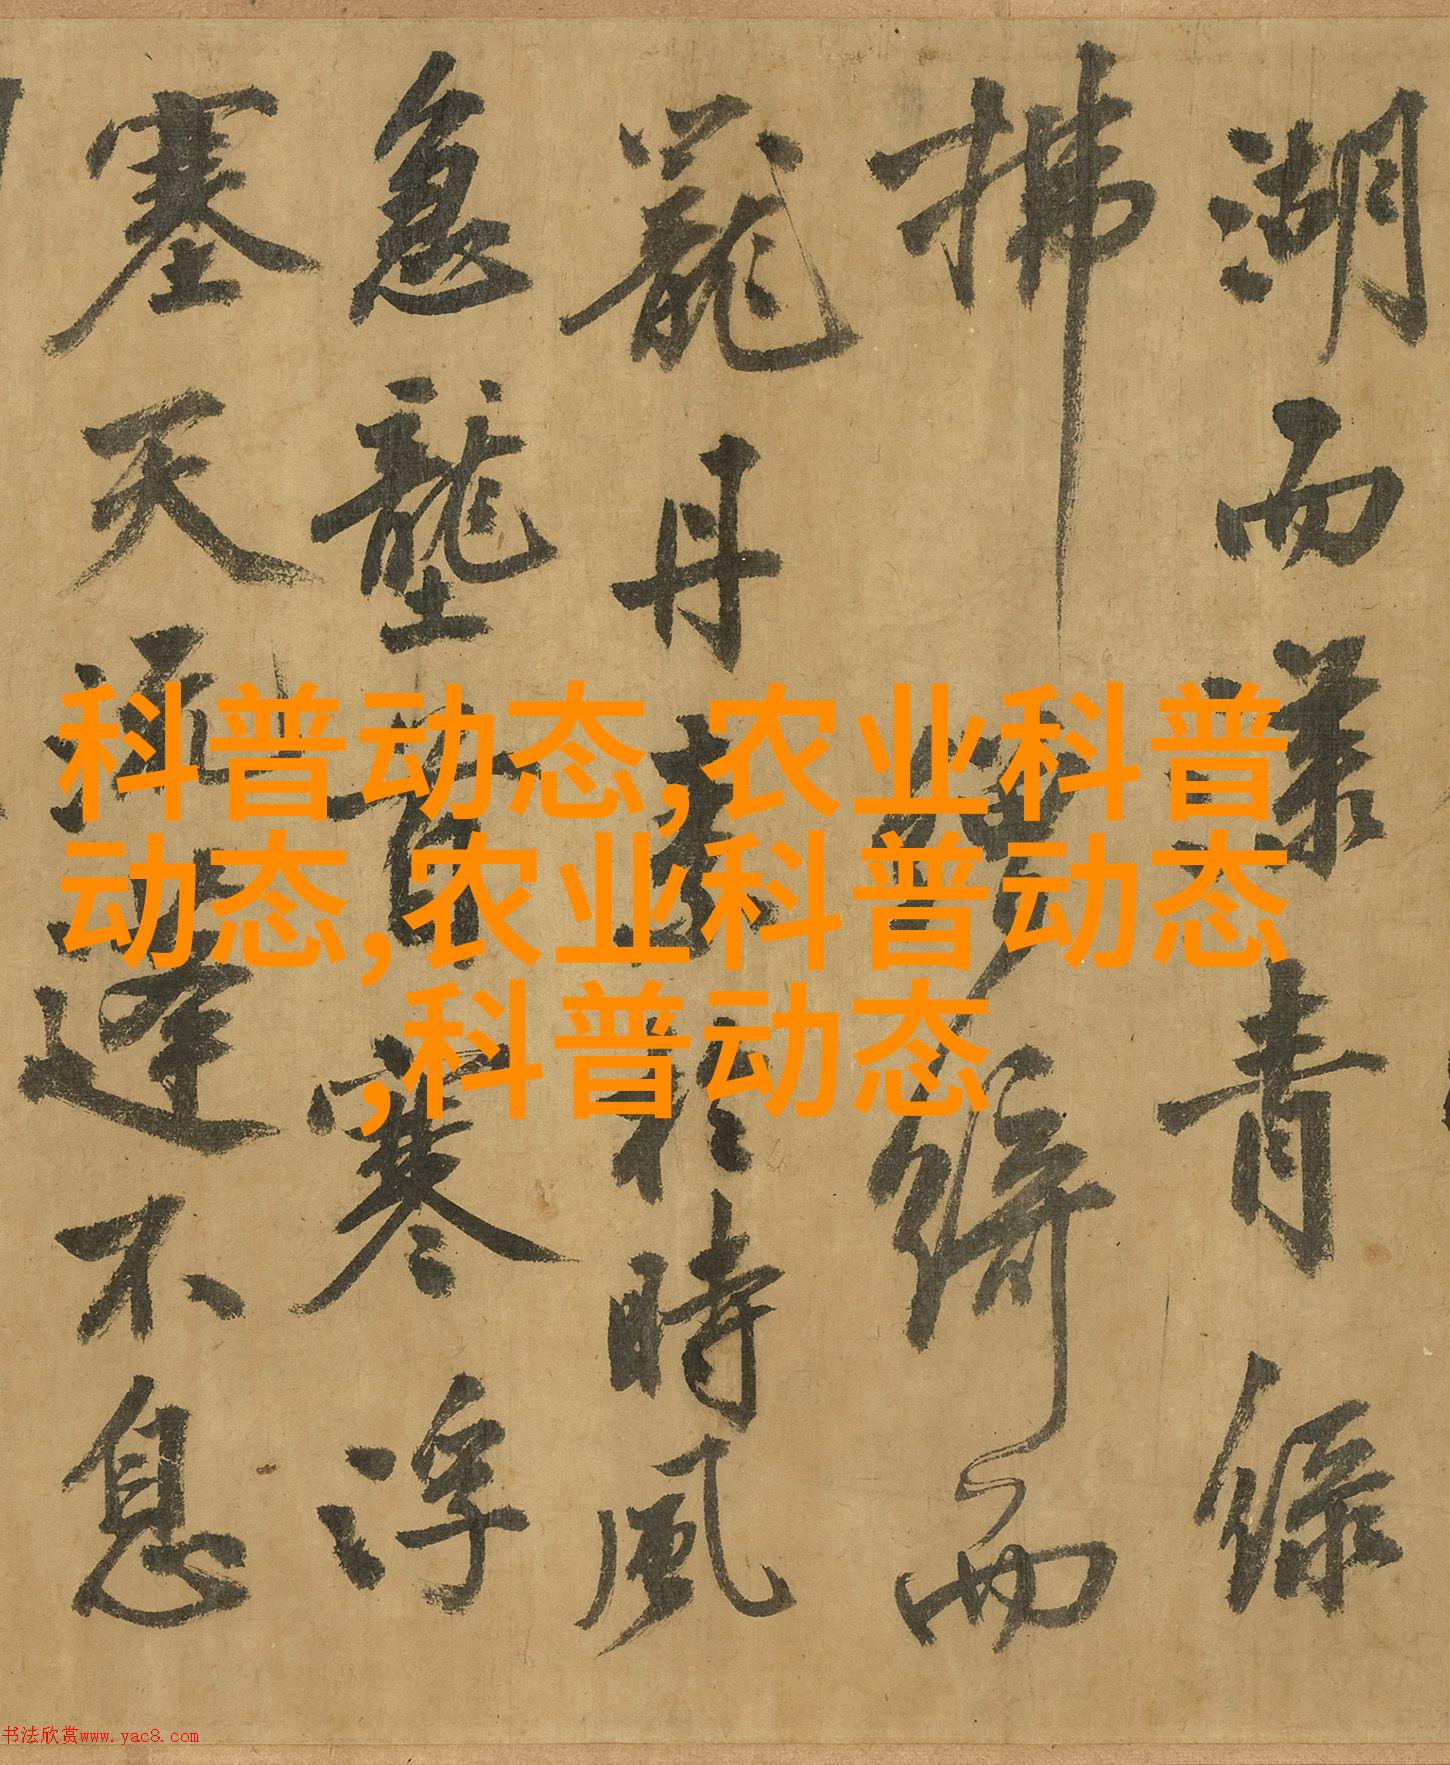 湖而漾青綠
拂綺而
丹於時風
急壟首寒浮
塞天逢不息
科普动态,农业科普
动态,农业科普动态
,科普动态
书法欣赏www.yac8.com